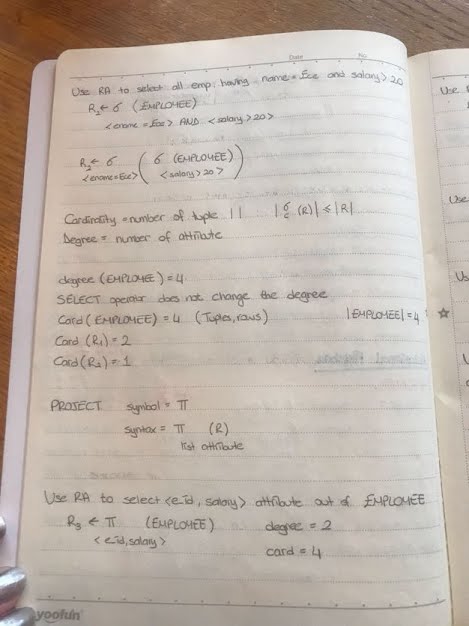 Date No.
Use RA to select all emp. having name=Ece and salary>20
R₂ ← σ (EMPLOYEE)
<ename=Ece> AND <salary>20>
R₂ ← σ ( σ (EMPLOYEE) )
<ename=Ece> <salary>20>
Cardinality = number of tuple | | |σ (R)| ≤ |R|
c
Degree = number of attribute
degree (EMPLOYEE) = 4
SELECT operator does not change the degree
Card (EMPLOYEE) = 4 (Tuples, rows) |EMPLOYEE| = 4
Card (R₁) = 2
Card (R₂) = 1
PROJECT symbol = π
syntax = π (R)
list attribute
Use RA to select <e_id, salary> attribute out of EMPLOYEE
R₃ ← π (EMPLOYEE) degree = 2
<e_id, salary>
card = 4
yoofun
Use R
Use
Us
U